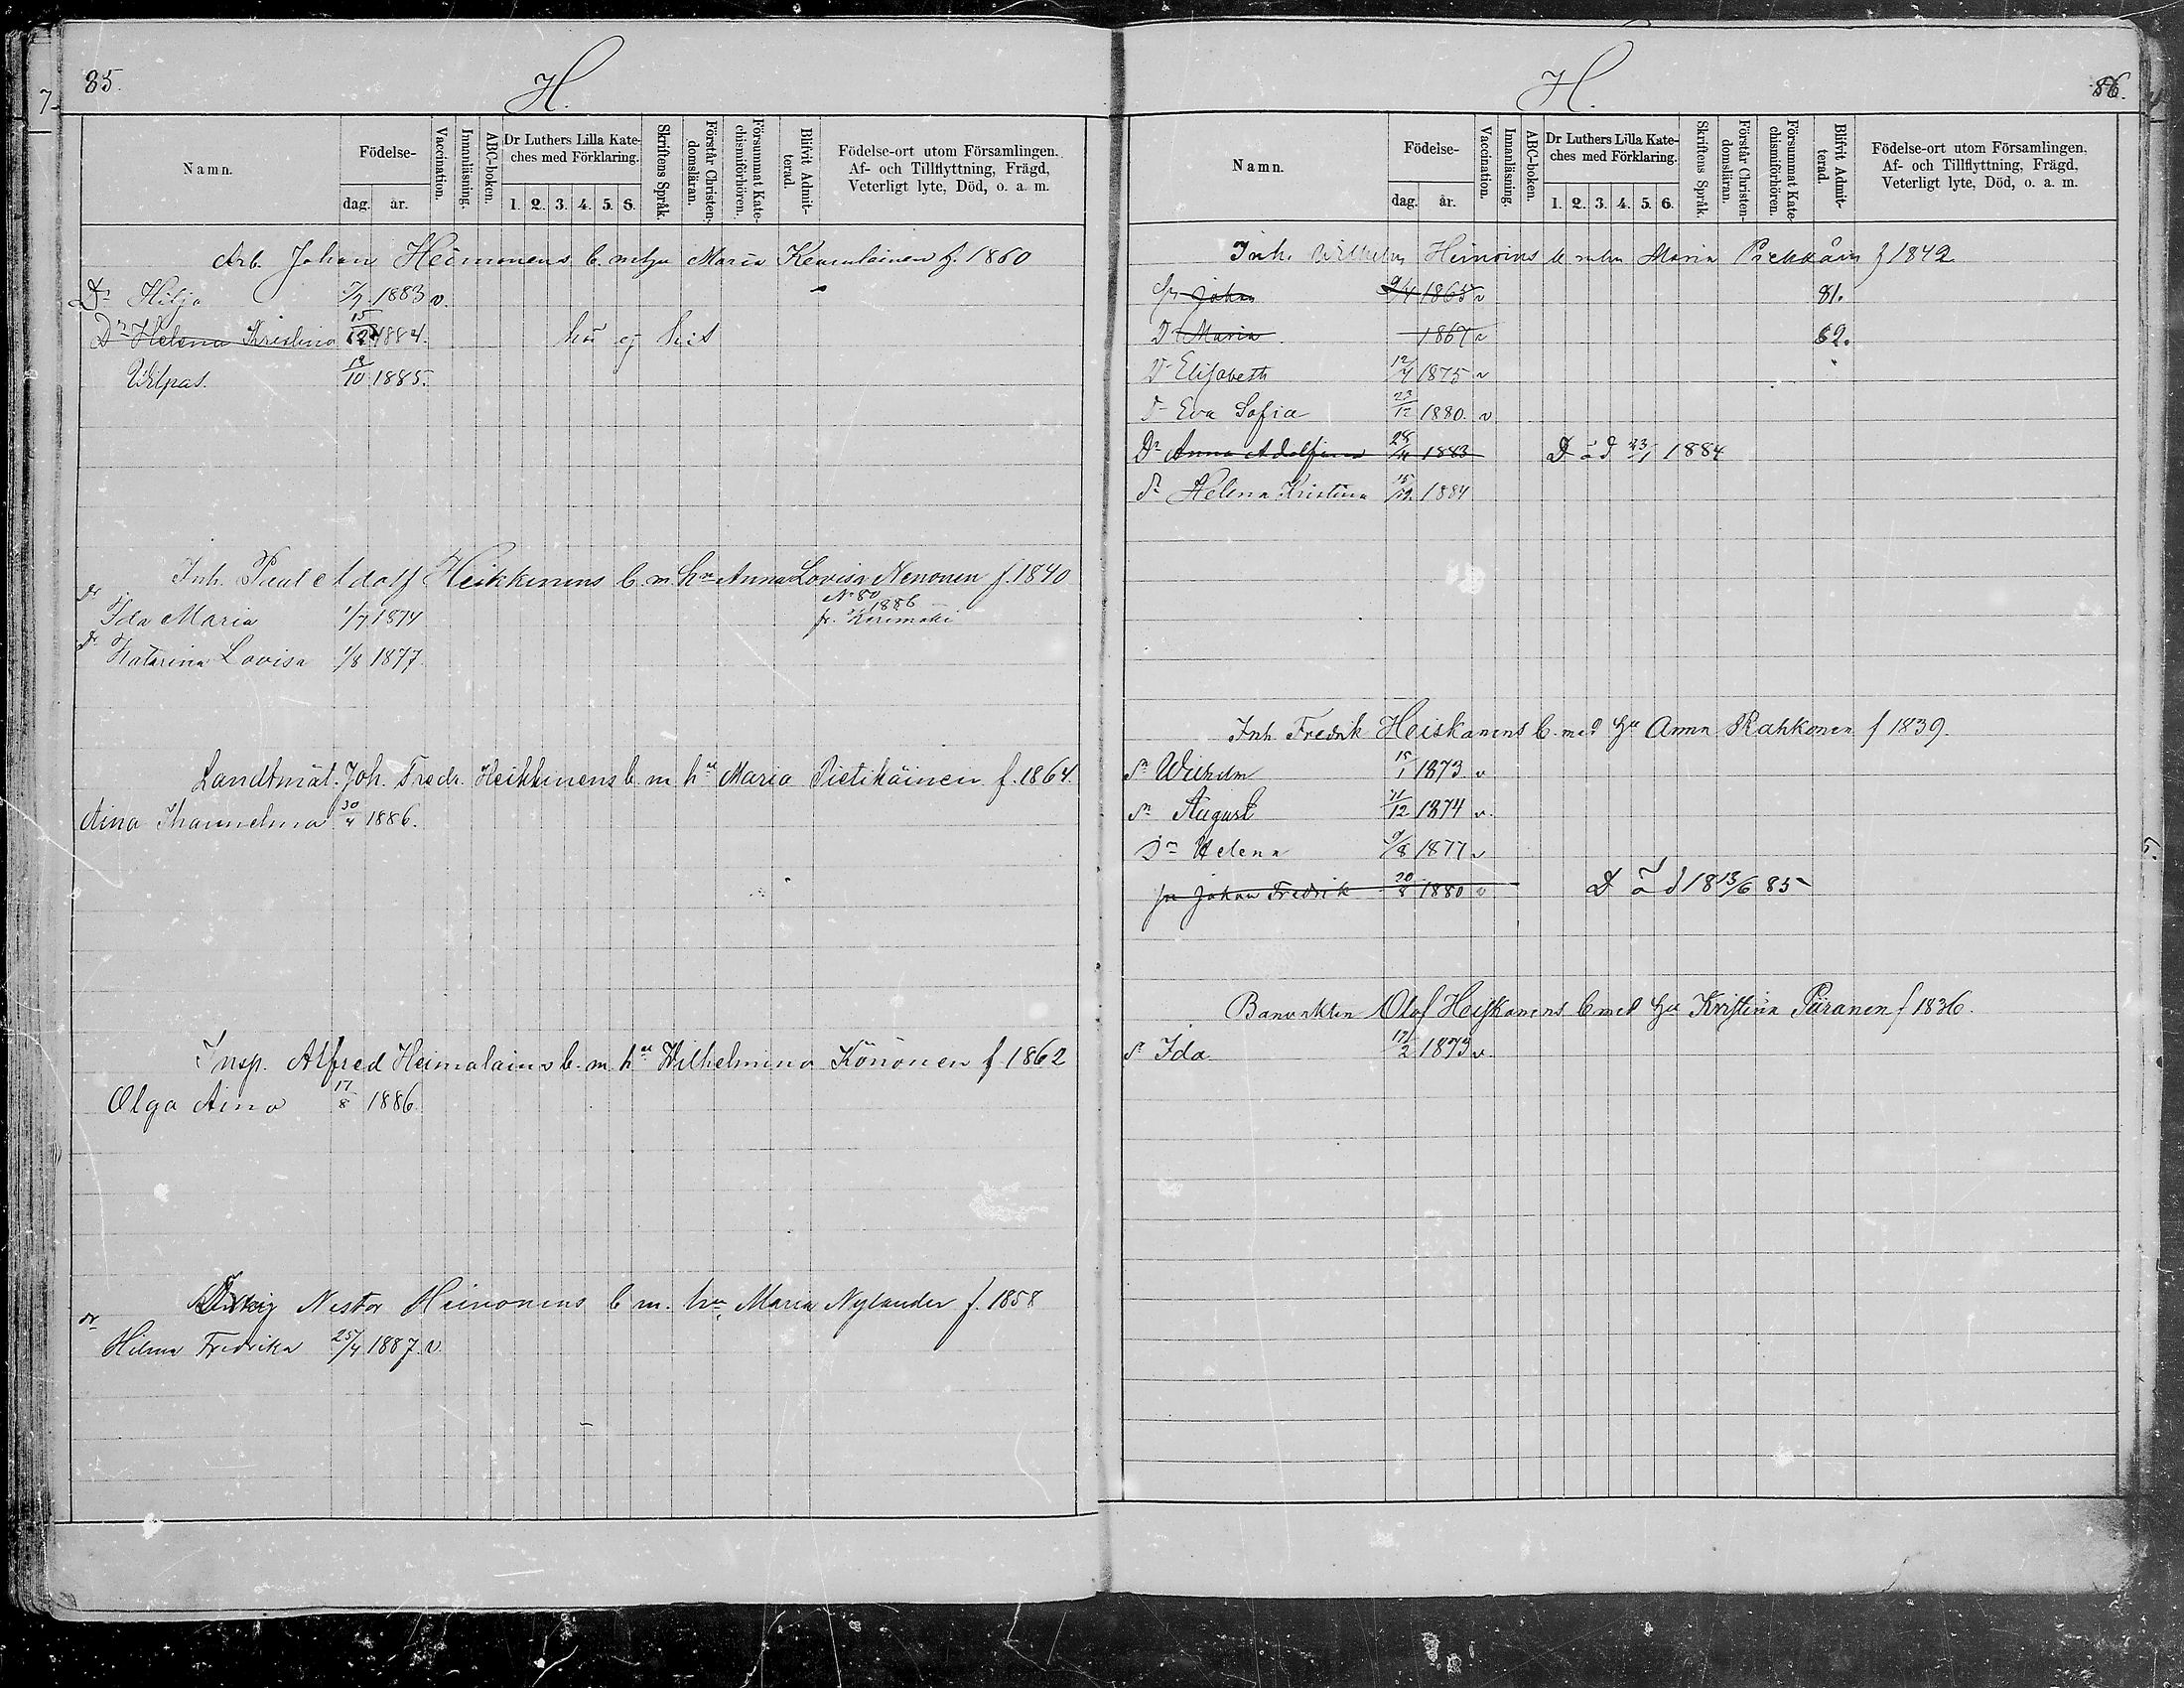 85.
H.
Namn.
Födelse-
dag.
år.
Vaccination.
Innanläsning.
ABC-boken.
Dr Luthers Lilla Kate-
ches med Förklaring.
1. 2. 3. 4. 5. 6.
Skriftens Språk.
Förstår Christen-
domsläran.
Försummat Kate-
chismiförhören.
Blifvit Admit-
terad.
Födelse-ort utom Församlingen.
Af- och Tillflyttning, Frägd,
Veterligt lyte, Död, o. a. m.
Arb. Johan Heimonens b. m Maria f. 1860
Dr Hilja 1883 v.
Dr Helena Kristina 15/12 1884. hör ej hit
Vilpas. 13/10 1885.
Inh. Paul Adolf Heikkinens b. m. hu Anna Lovisa Nenonen f. 1840
No 80
1886
dr Ida Maria 1/7 1874 fr. Kerimäki
Dr Katarina Lovisa 1/8 1877.
Landtmät. Joh. Fredr. Heikkinens b. m hu Maria Pietikäinen f. 1864.
Aina 30/4 1886.
Insp. Alfred Heimalains b. m. hu Wilhelmina Könönen f 1862
Olga Aino 17/8 1886.
Nestor Heinonens b m. hu Maria Nylander f. 1858
dr
Hilma Fredrika 25/4 1887. v.
H.
86.
Namn.
Födelse-
dag.
år.
Vaccination.
Innanläsning.
ABC-boken.
Dr Luthers Lilla Kate-
ches med Förklaring.
1. 2. 3. 4. 5. 6.
Skriftens Språk.
Förstår Christen-
domsläran.
Försummat Kate-
chismiförhören.
Blifvit Admit-
terad.
Födelse-ort utom Församlingen,
Af- och Tillflyttning, Frägd,
Veterligt lyte, Död, o. a. m.
Inh. Wilhelm Heinoins b m hu Maria f 1842
Johan 9/4 1865 v 81.
D Maria 1867 v 82.
Dr Elisabeth 12/4 1875 v
Dr Eva Sofia 23/12 1880. v
Dr Anna Adolfina 1883 1884
Dr Helena Kristina 15/12 1884
Inh Fredrik Heiskanens b. med hu Anna Rahkonen f 1839.
Sn Wilhelm 15/1 1873 v
Sn August 31/12 1874 v.
Dr Helena 9/8 1877 v
Sn Johan Fredrik 20/8 1880 v 18 13/6 85
Banvakten Olof Heiskanens b med hu Kristina Piiranen f 1836.
Dr Ida 1873 v.